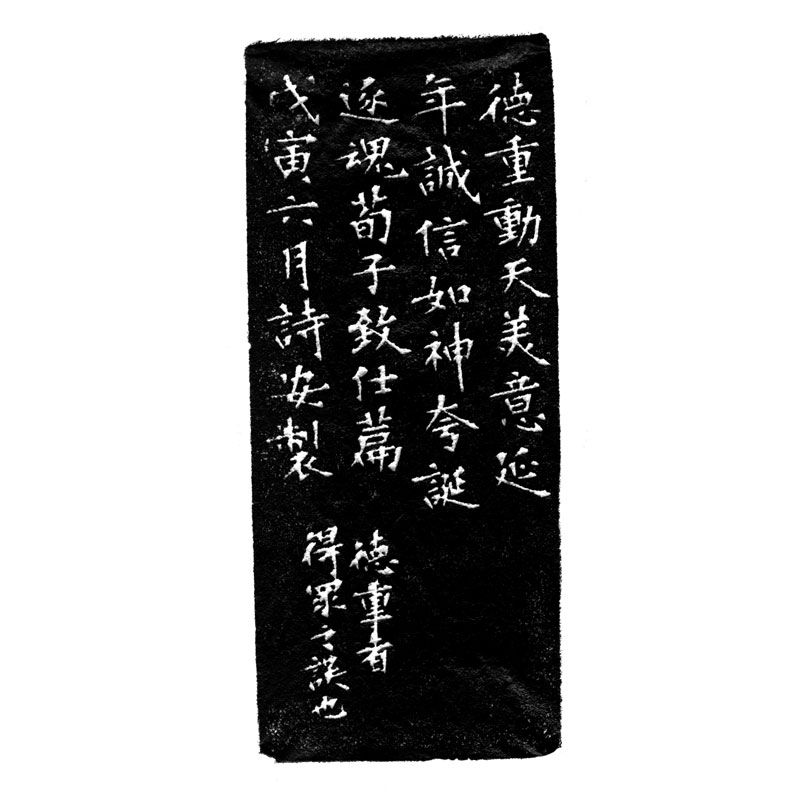 德重動天美意延
年誠信如神夸誕
逐魂荀子致仕篇
戊寅六月詩安製
德重有
得眾之誤也